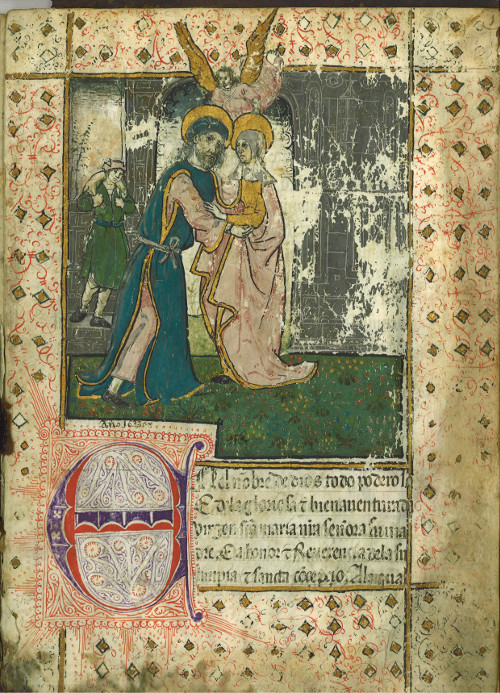 EN el nõbre de dios todo poderoso
E dela gloriosa ⁊ bienauenturada
virgen sc̃a maria nr̃a señora su ma
dre. E a honor ⁊ Reuerencia dela su
limpia ⁊ sancta cõcepçiõ. Ala qual